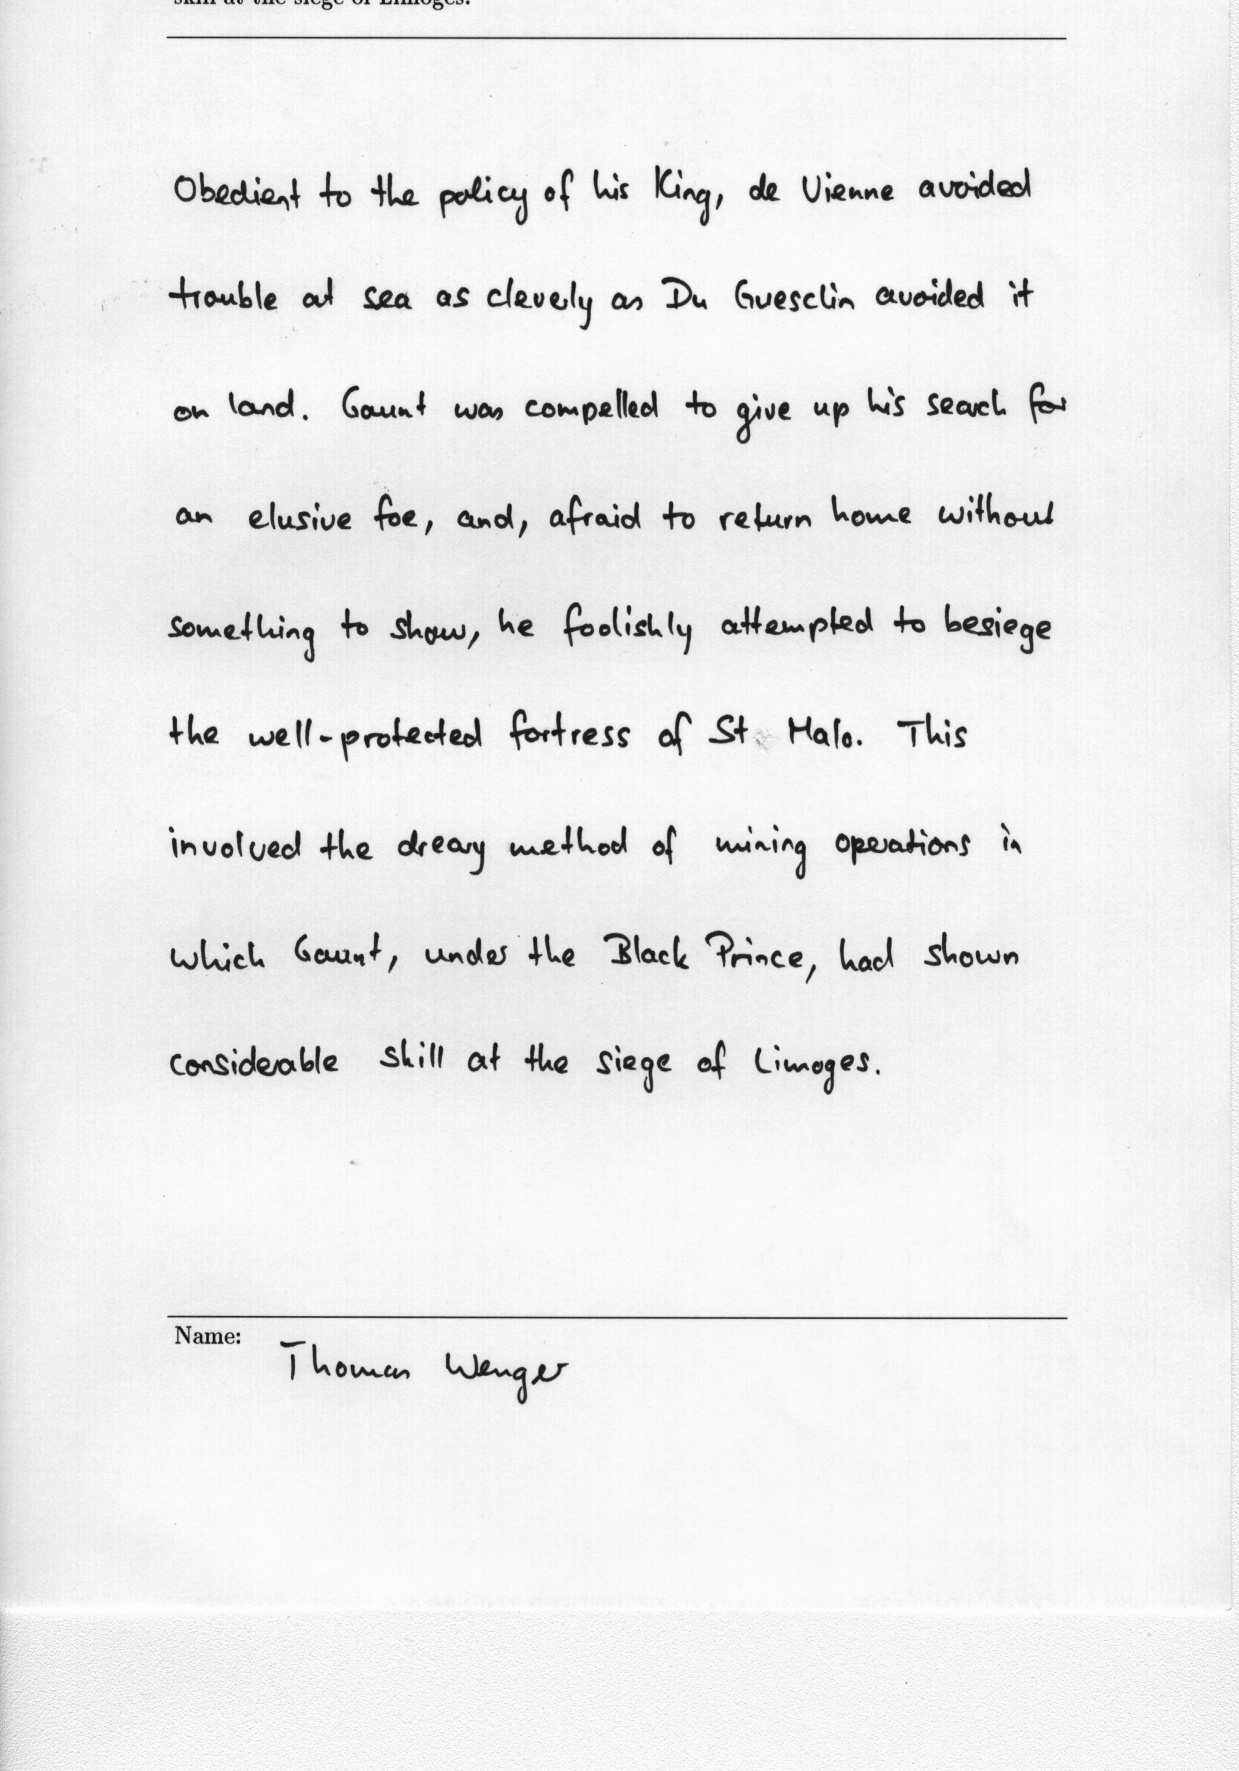 skill at the siege of Limoges.
Obedient to the policy of his King, de Vienne avoided
trouble at sea as cleverly as Du Guesclin avoided it
on land. Gaunt was compelled to give up his search for
an elusive foe, and, afraid to return home without
something to show, he foolishly attempted to besiege
the well-protected fortress of St Malo. This
involved the dreary method of mining operations in
which Gaunt, under the Black Prince, had shown
considerable skill at the siege of Limoges.
Name:
Thomas Wenger